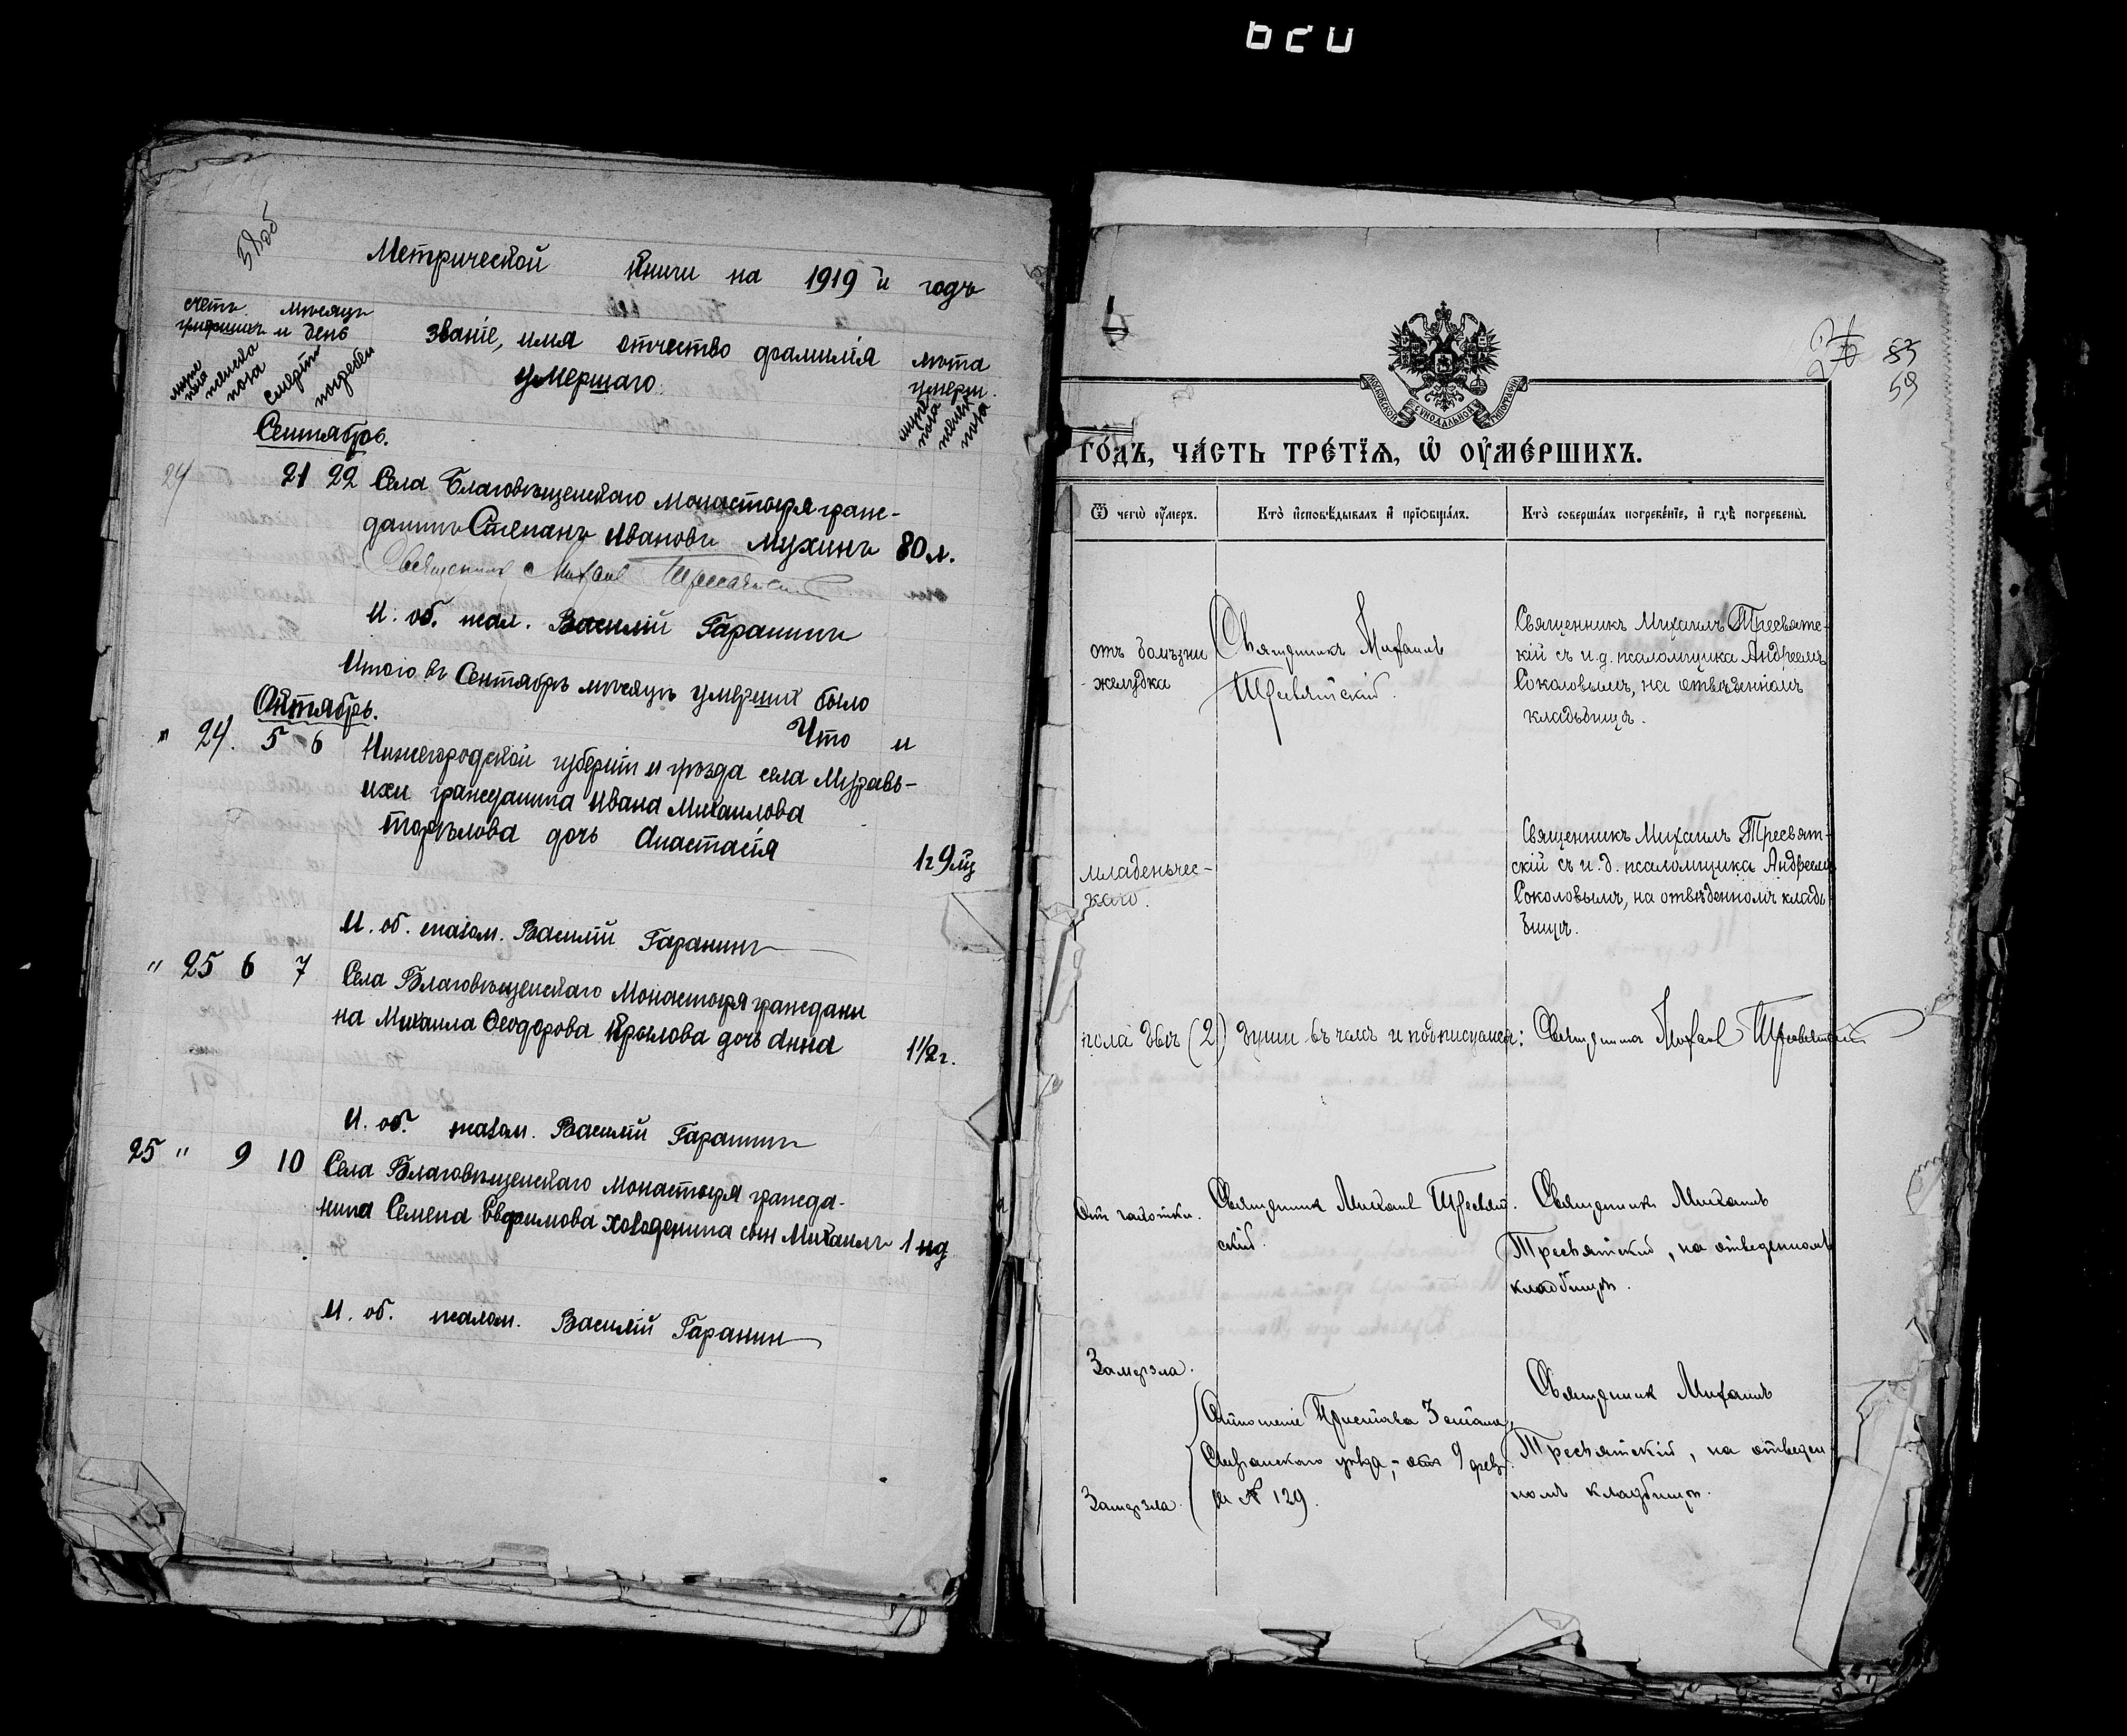 58об
Метрической книги на 1919 й годъ
счетъ умершихъ
мѣсяцъ и день
звание, имя отчество фамилія умершаго.
лѣта умерш.
Сентябрь.
24 21 22 Села Благовѣщенскаго Монастыря граж-
данинъ Степанъ Ивановъ Мухинъ 80 л.
Священникъ Михаил
И. об. псал. Василій Гаранинъ
Итого въ Сентябрѣ мѣсяцѣ умерших было
Октябрь.
" 24. 5 6 Нижегородской губерніи и уѣзда села Муравь-
ихи гражданина Ивана Михаилова
дочь Анастасія 1 г 9 мц
И. об. псалом. Василій Гаранинъ
" 25 6 7 Села Благовѣщенскаго Монастыря граждани
на Михаила Ѳеодорова Крылова дочь Анна 1 1/2 г.
И. об. псалом. Василій Гаранинъ
25 " 9 10 Села Благовѣщенскаго Монастыря гражда-
нина Семена Евфимова Холоденина сын Михаилъ 1 нд
И. об. псалом. Василій Гаранин
МОСКОВСКОЙ СѴНОДАЛЬНОЙ ТИПОГРАФІИ
85
59
ГО́ДЪ, ЧА́СТЬ ТРЕ́ТЇѦ, Ѡ҆ ОУ҆МЕ́РШИХЪ.
Ѿ чегѡ̀ оу҆́меръ.
Кто̀ и҆сповѣ́дывалъ и҆ прїѡбща́лъ.
Кто̀ соверша́лъ погребе́нїе, и҆ гдѣ̀ погребены̀.
отъ болѣзни
желудка
Священникъ Михаилъ
Тресвятскій.
Священникъ Михаилъ Тресвятс-
кій съ и.д. псаломщика Андреемъ
Соколовымъ, на отведенномъ
кладбищѣ.
младенчес-
каго.
Священникъ Михаилъ Тресвят-
скій съ и.д. псаломщика Андреемъ
Соколовымъ, на отведенномъ клад-
бищѣ.
пола двѣ (2) души въ чемъ и подписуемся: Священникъ Михаил Тресвятскій
От чахотки.
Священник Михаил Тресвят.
скій.
Священникъ Михаилъ
Тресвятский, на отведенномъ
кладбищѣ.
Замерзла.
Замерзла.
Отношеніе Пристава 3 стана
уѣзда, от 9 февр.
за № 129.
Священник Михаилъ
Тресвятский, на отведен
номъ кладбищѣ.